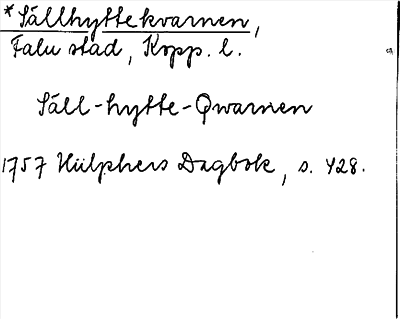 *Sällhyttekvarnen,
Falu stad, Kopp. l.
Säll-hytte-Qwarnen
1757 Hülphers Dagbok, s. 428.